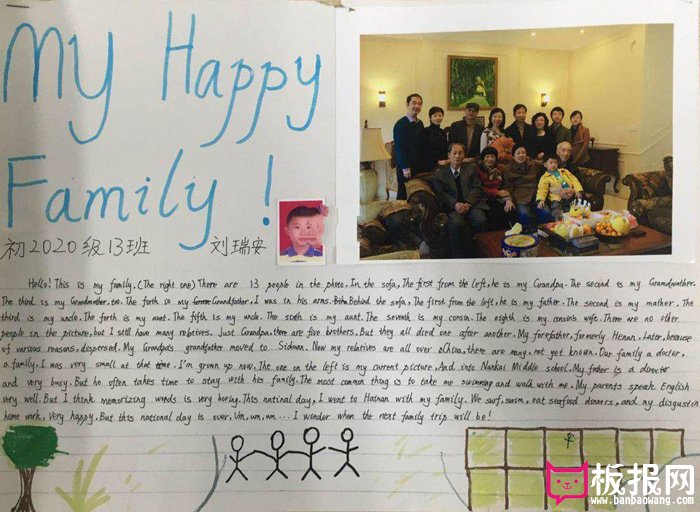 My Happy
Family !
初2020级13班 刘瑞安
Hello! This is my family. (The right one) There are 13 people in the photo. In the sofa, The first from the left, he is my Grandpa. The second is my Grandmather.
The third is my Grandmather, too. The forth is my Grandfather, I was in his arms. Behind the sofa, The first from the left, he is my father. The second is my mather. The
third is my uncle. The forth is my aunt. The fifth is my uncle. The sixth is my aunt. The seventh is my consin. The eighth is my consin's wife. There are no other
people in the picture, but I still have many reletives. Just Grandpa, there are five brothers. But they all died one after another. My forefather, formerly Henan. Later, because
of various reasons, dispersed. My Grandpa's grandfather moved to Sichuan. Now my relatives are all over China, there are many not yet known. Our family a doctor,
a family. I was very small at that time. I'm grown up now. The one on the left is my current picture. And into Nankai Middle school. My father is a director
and very busy. But he often takes time to stay with his family. The most common thing is to take me swimming and walk with me. My parents speak English
very well. But I think memorizing words is very boring. This national day, I went to Hainan with my family. We surf, swim, eat seafood dinners, and my disgustin
home work, Very happy. But this national day is over. Um, um, um... I wonder when the next family trip will be!
板报网
www.banbaowang.com